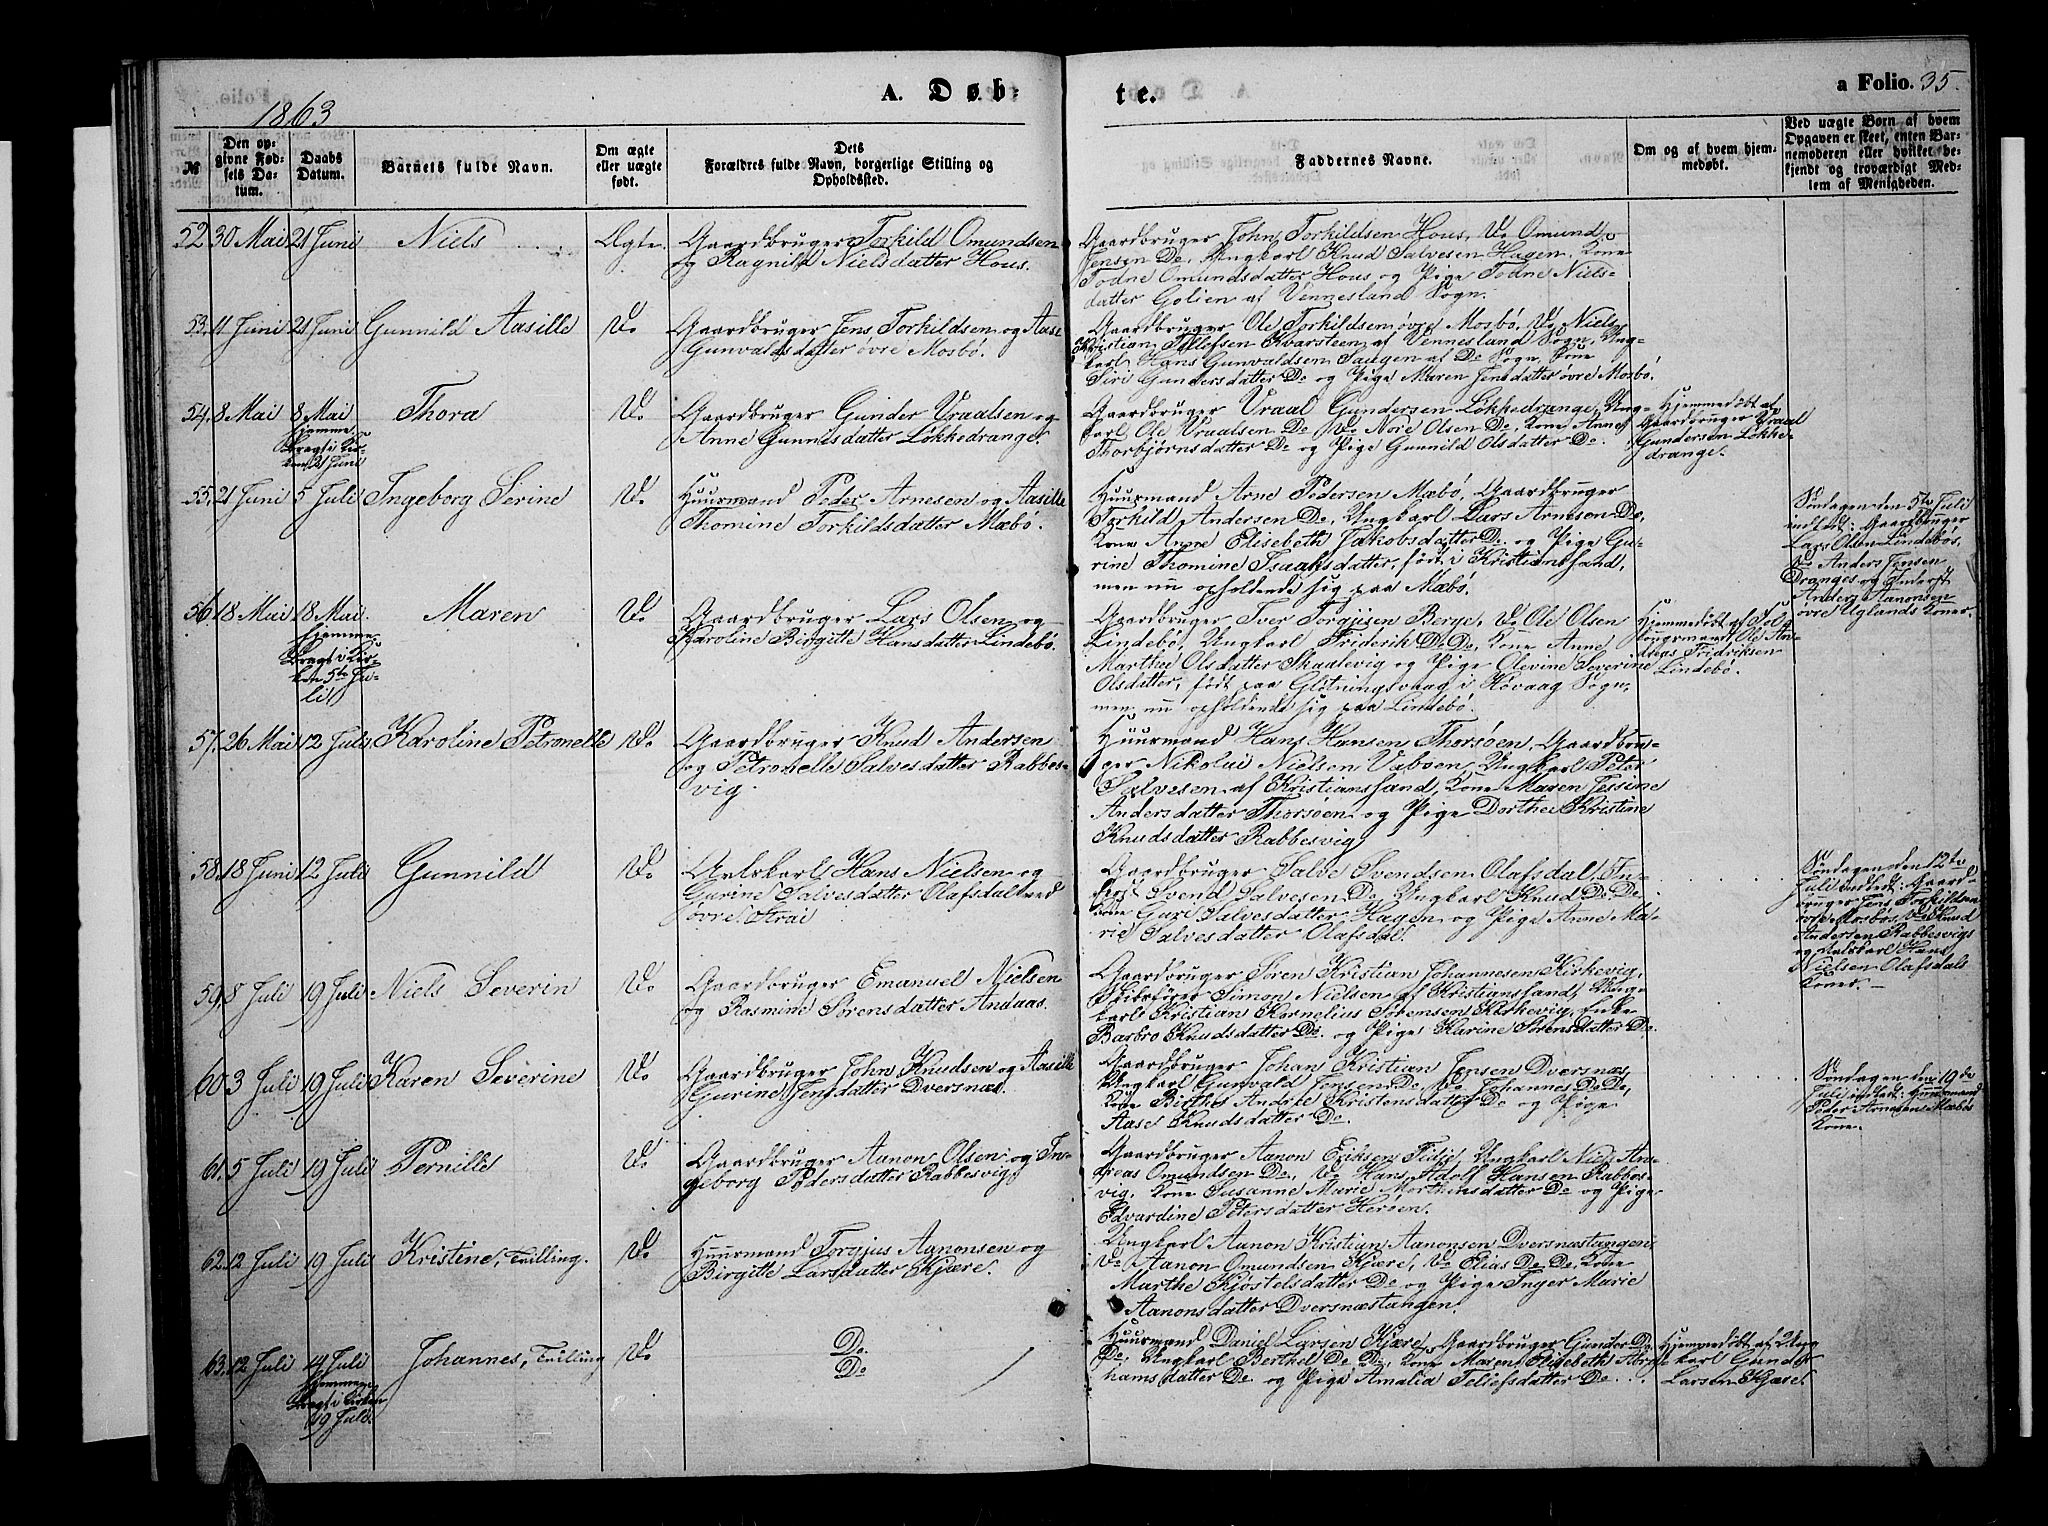 1863
A. Døb-
te.
a Folio. 35.
№
Den op-
givne Fød-
sels Da-
tum.
Daabs
Datum.
Barnets fulde Navn.
Om ægte
eller uægte
født.
Dets
Forældres fulde Navn, borgerlige Stilling og
Opholdssted.
Faddernes Navne.
Om og af hvem hjem-
medøbt.
Ved uægte Børn af hvem
Opgaven er skeet, enten Bar-
nemoderen eller hvilket be-
kjendt og troværdigt Med-
lem af Menigheden.
52. 30 Mai 21 Juni Niels Ægte.
Gaardbruger Torkild Omundsen
og Ragnild Nielsdatter Hous.
Gaardbruger John Torkildsen Hous, Do Omund
Jensen Do, Ungkarl Knud Salvesen Hagen, Kone
Todne Omundsdatter Hous og Pige Todne Niels-
datter Golien af Vennesland Sogn.
53. 11 Juni 21 Juni Gunnild Aasille Do
Gaardbruger Jens Torkildsen og Aase
Gunvaldsdatter øvre Mosbø.
Gaardbruger Ole Torkildsen øvre Mosbø, Do Niels
Kristian Tellefsen Kvarsteen af Vennesland Sogn, Ung-
karl Hans Gunvaldsen Saugen af Do Sogn, Kone
Siri Gundersdatter Do og Pige Maren Jensdatter øvre Mosbø.
54. 8 Mai 8 Mai Thora Do
Hjemme.
Bragt i Kir-
ken 21 Juni
Gaardbruger Gunder Vraalsen og
Anne Gunnesdatter Løkkedrange
Gaardbruger Vraal Gundersen Løkkedrange, Ung-
karl Ole Vraalsen Do, Do Noie Olsen Do, Kone Anne
Thorbjørnsdatter Do og Pige Gunnild Olsdatter Do.
Hjemmedøbt af
Gaardbruger Vraal
Gundersen Løkke-
drange.
55. 21 Juni 5 Juli Ingeborg Serine Do
Huusmand Peder Arnesen og Aasille
Thomine Torkildsdatter Mæbø.
Huusmand Arne Pedersen Mæbø, Gaardbruger
Torkild Andersen Do, Ungkarl Lars Arnesen Do,
Kone Anne Elisebeth Jakobsdatter Do. og Pige Gu-
rine Thomine Isaaksdatter, født i Kristianssand,
men nu opholdende sig paa Mæbø.
Søndagen den 5te Juli
indledt: Gaardbruger
Lars Olsen Lindebøs,
Do Anders Jensen
Dranges og Inderst
Anders Aanonsen
øvre Uglands Koner.
56. 18 Mai 18 Mai. Maren Do
Hjemme.
Bragt i Kir-
ken 5te Ju-
li
Gaardbruger Lars Olsen og
Karoline Birgitte Hansdatter Lindebø.
Gaardbruger Iver Torgjisen Berge, Do Ole Olsen
Lindebø, Ungkarl Friderik Do Do, Kone Anne
Marthe Olsdatter Skaalevig og Pige Olevine Severine
Olsdatter, født paa Gløtningsvaag i Høvaag Sogn,
men nu opholdende sig paa Lindebø.
Hjemmedøbt af Fol-
tougsmand, Ole An-
dreas Fridriksen
Lindebø.
57. 26 Mai 12 Juli Karoline Petronelle Do
Gaardbruger Knud Andersen
og Petronelle Salvesdatter Rabbes-
vig.
Huusmand Hans Hansen Thorsøen, Gaardbru-
ger Nikolai Nielsen Vabøen, Ungkarl Peter
Salvesen af Kristianssand, Kone Maren Jessine
Andersdatter Thorsøen. og Pige Dorthea Kristine
Knudsdatter Rabbesvig.
58. 18 Juni 12 Juli Gunnild Do
Arbskarl Hans Nielsen og
Gurine Salvesdatter Olafsdal ved
øvre Strai
Gaardbruger Salve Svendsen Olafsdal, In-
derst Svend Salvesen Do Ungkarl Knud Do Do
Kone Guri Salvesdatter Hagen og Pige Anne Ma-
rie Salvesdatter Olafsdal.
Søndagen den 12te
Juli indledt: Gaard-
bruger Jens Torkildsen
øvre Mosbøs, Do Knud
Andersen Rabbesvigs
og Arbskarl Hans
Nielsen Olafsdals
Koner.
59. 8 Juli 19 Juli Niels Severin Do
Gaardbruger Emanuel Nielsen
og Rasmine Sørensdatter Andaas.
Gaardbruger Søren Kristian Johannesen Kirkevig,
Skibsfører Simon Nielsen af Kristianssand, Ung-
karl Kristian Kornelius Sørensen Kirkevig, Enke
Barbro Knudsdatter Do. og Pige Karine Sørensdatter Do.
60. 3 Juli 19 Juli Karen Severine Do
Gaardbruger John Knudsen og Aasille
Gurine Jensdatter Dversnæs.
Gaardbruger Johan Kristian Jensen Dversnæs
Ungkarl Gunvald Jensen Do, Do Johannes Do Do,
Kone Birthe Andrea Kristensdatter Do og Pige
Aase Knudsdatter Do.
Søndagen den 19de
Juli indledt: Huusmand
Peder Arnesen Mæbøs
Kone.
61. 5 Juli 19 Juli Pernille Do
Gaardbruger Aanon Olsen og In-
geborg Pedersdatter Rabbesvig.
Gaardbruger Aanon Eriksen Tidje, Ungkarl Niels An-
dreas Omundsen Do, Do Hans Adolf Hansen Rabbes-
vig, Kone Susanne Marie Morthensdatter Do og Pige
Edvardine Petersdatter Herøen.
62. 12 Juli 19 Juli Kristine, Tvilling. Do
Huusmand Torgjus Aanonsen og
Birgitte Larsdatter Kjære.
Ungkarl Aanon Kristian Aanonsen Dversnæstangen,
Do Aanon Omundsen Kjære, Do Elias Do Do, Kone
Marthe Kjøstelsdatter Do og Pige Inger Marie
Aanonsdatter Dversnæstangen.
63. 12 Juli 14 Juli Johannes, Tvilling Do
Hjemme.
Bragt i Kirken
19 Juli.
Do.
Do
Huusmand Daniel Larsen Kjære, Gaardbruger Gunder Do
Do, Ungkarl Berthel Do Do, Kone Maren Elisebeth Abra-
hamsdatter Do og Pige Amalia Tellefsdatter Do.
Hjemmedøbt af Ung
karl Gunder
Larsen Kjære